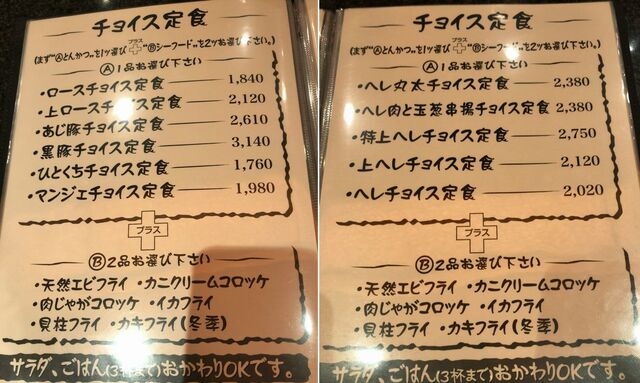 チョイス定食
プラス
(まず"Ⓐとんかつ"を1ツ選び "Ⓑシーフード"を2ツお選び下さい。)
Ⓐ1品お選び下さい
・ロースチョイス定食 1,840
・上ロースチョイス定食 2,120
・あじ豚チョイス定食 2,610
・黒豚チョイス定食 3,140
・ひとくちチョイス定食 1,760
・マンジェチョイス定食 1,980
プラス
Ⓑ2品お選び下さい
・天然エビフライ ・カニクリームコロッケ
・肉じゃがコロッケ ・イカフライ
・貝柱フライ ・カキフライ(冬季)
サラダ、ごはん(3杯まで)おかわりOKです。
チョイス定食
プラス
(まず"Ⓐとんかつ"を1ツ選び "Ⓑシーフード"を2ツお選び下さい。)
Ⓐ1品お選び下さい
・ヘレ丸太チョイス定食 2,380
・ヘレ肉と玉葱串揚チョイス定食 2,380
・特上ヘレチョイス定食 2,750
・上ヘレチョイス定食 2,120
・ヘレチョイス定食 2,020
プラス
Ⓑ2品お選び下さい
・天然エビフライ ・カニクリームコロッケ
・肉じゃがコロッケ ・イカフライ
・貝柱フライ ・カキフライ(冬季)
サラダ、ごはん(3杯まで)おかわりOKです。